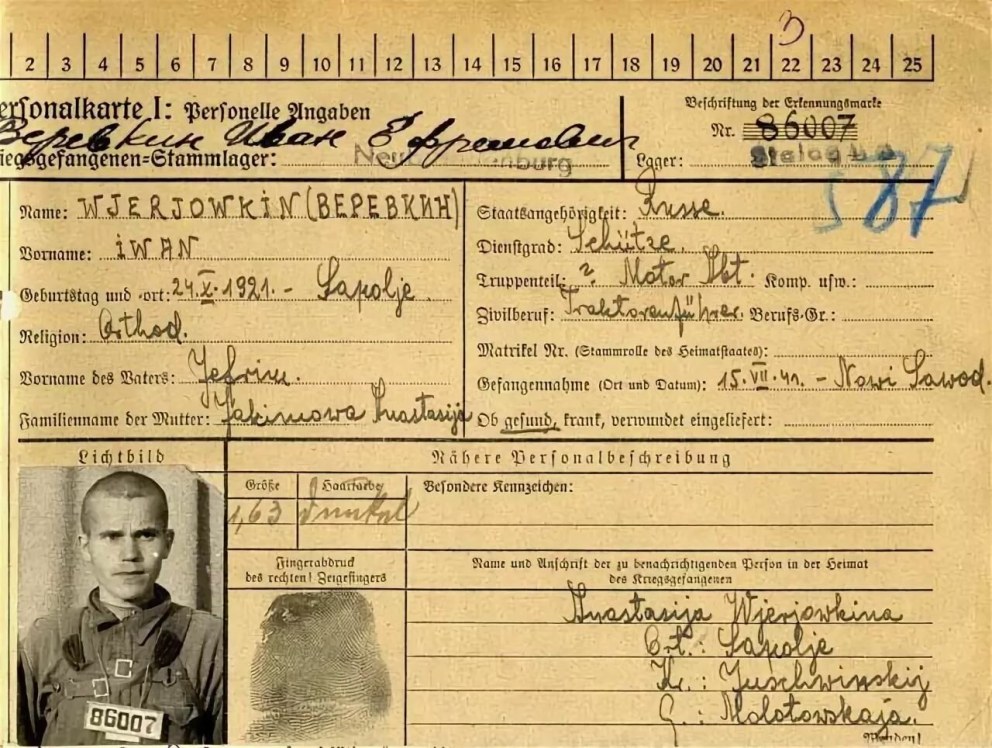 3
2 3 4 5 6 7 8 9 10 11 12 13 14 15 16 17 18 19 20 21 22 23 24 25
ersonalkarte I: Personelle Angaben
Beschriftung der Erkennungsmarke
Веревкин Иван Ефремович
Nr. 86007
iegsgefangenen-Stammlager: Neu nburg
Lager: Stalag
587
Name: WJERJOWKIN (ВЕРЕВКИН)
Vorname: IWAN
Geburtstag und -ort: 24.X.1921. - Sapolje.
Religion: Orthod.
Vorname des Vaters: Jefrim.
Familienname der Mutter: Jakimowa Anastasija
Staatsangehörigkeit: Russe.
Dienstgrad: Schütze.
Truppenteil: ? Motor Abt. Komp. usw.:
Zivilberuf: Traktorenführer. Berufs-Gr.:
Matrikel Nr. (Stammrolle des Heimatstaates):
Gefangennahme (Ort und Datum): 15.VII.41. - Nowi Sawod.
Ob gesund, krank, verwundet eingeliefert:
Lichtbild
Nähere Personalbeschreibung
Größe
1,63
Haarfarbe
dunkel
Besondere Kennzeichen:
Fingerabdruck
des rechten! Zeigefingers
Name und Anschrift der zu benachrichtigenden Person in der Heimat
des Kriegsgefangenen
Anastasija Wjerjowkina
Ort.: Sapolje
Kr.: Juschwinskij
G.: Molotowskaja.
86007
Wenden!